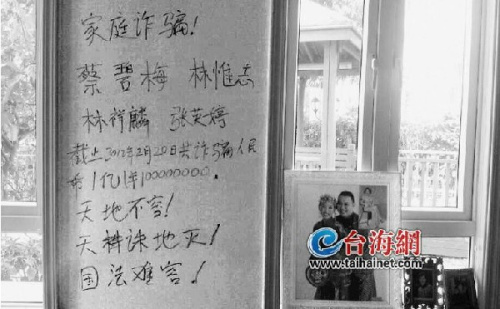 家庭诈骗!
蔡碧梅 林惟志
林祥麟 张芙婷
截止2012年2月20日共诈骗人民
币1亿(¥100000000.
天地不容!
天神诛地灭!
国法难容!
台海網
www.taihainet.com